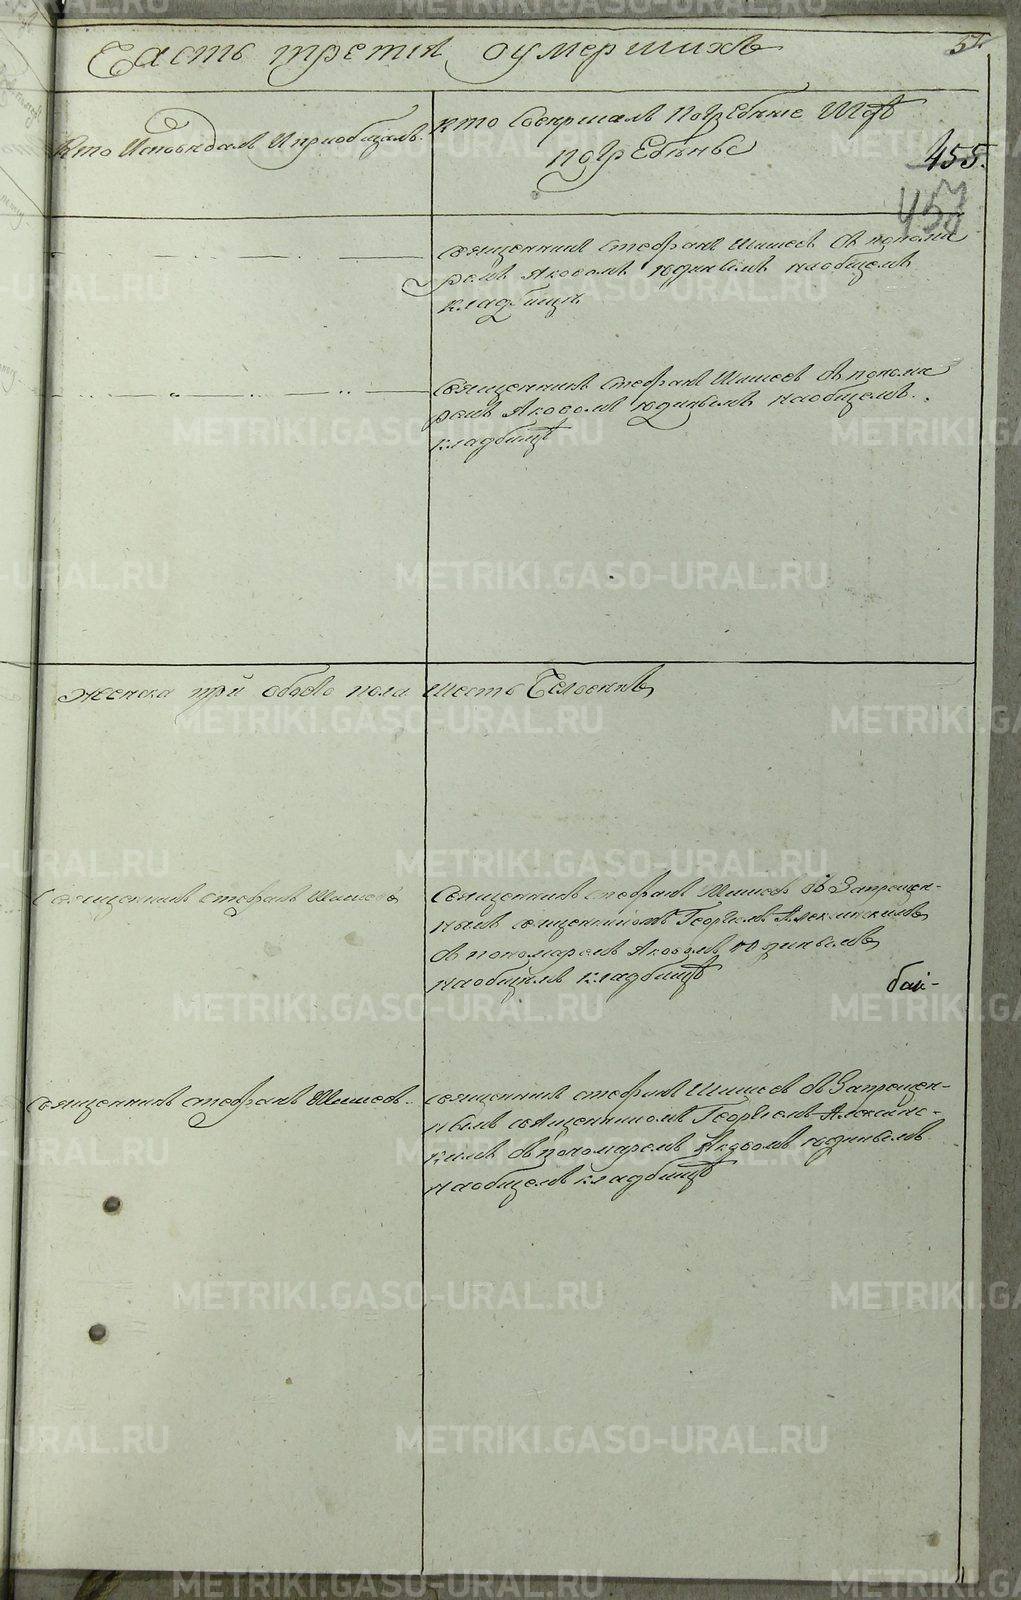 Часть третія оумершихъ
51
Кто Исповѣдалъ И пріобщалъ.
кто Совершалъ Погребеніе И гдѣ
погребены
455.
457
священникъ стефанъ Шишовъ съ понома
ремъ Яковомъ юдинымъ наобщемъ
кладбищѣ
священникъ стефанъ Шишовъ съ понома
ремъ Яковомъ юдинымъ наобщемъ.
кладбищѣ
женска три обоего пола шесть Человекъ
Священникъ стефанъ Шишовъ
Священникъ стефанъ Шишовъ съ Запрещен-
нымъ священникомъ Георгіемъ Алексинскимъ
съ пономаремъ Яковомъ юдинымъ
наобщемъ кладбищѣ
бай-
священникъ стефанъ Шишовъ.
священникъ стефанъ Шишовъ съ Запрещен-
нымъ священникомъ Георгіемъ Алексинс-
кимъ съ пономаремъ Яковомъ юдинымъ
наобщемъ кладбищѣ
METRIKI.GASO-URAL.RU